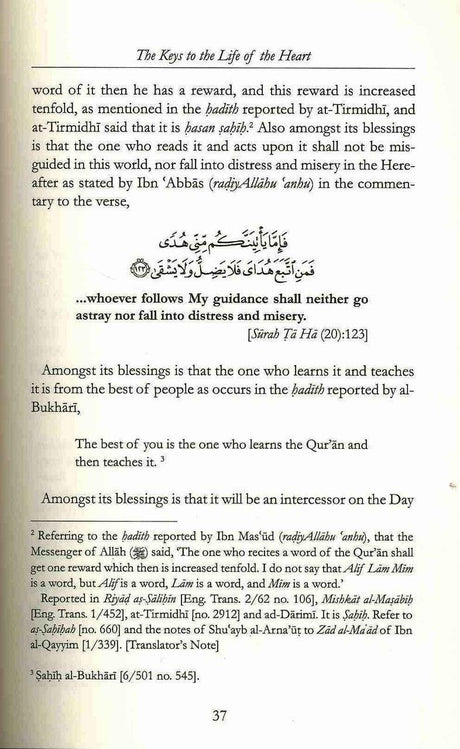 The Keys to the Life of the Heart
word of it then he has a reward, and this reward is increased
tenfold, as mentioned in the ḥadīth reported by at-Tirmidhī, and
at-Tirmidhī said that it is ḥasan ṣaḥīḥ.² Also amongst its blessings
is that the one who reads it and acts upon it shall not be mis-
guided in this world, nor fall into distress and misery in the Here-
after as stated by Ibn ‘Abbās (raḍiyAllāhu ‘anhu) in the commen-
tary to the verse,
فَإِمَّا يَأْتِيَنَّكُم مِّنِّي هُدًى
فَمَنِ اتَّبَعَ هُدَايَ فَلَا يَضِلُّ وَلَا يَشْقَىٰ ﴿١٢٣﴾
...whoever follows My guidance shall neither go
astray nor fall into distress and misery.
[Sūrah Ṭā Hā (20):123]
Amongst its blessings is that the one who learns it and teaches
it is from the best of people as occurs in the ḥadīth reported by al-
Bukhārī,
The best of you is the one who learns the Qur’ān and
then teaches it. ³
Amongst its blessings is that it will be an intercessor on the Day
² Referring to the ḥadīth reported by Ibn Mas‘ūd (raḍiyAllāhu ‘anhu), that the
Messenger of Allāh (ﷺ) said, ‘The one who recites a word of the Qur’ān shall
get one reward which then is increased tenfold. I do not say that Alif Lām Mīm
is a word, but Alif is a word, Lām is a word, and Mīm is a word.’
Reported in Riyāḍ aṣ-Ṣāliḥīn [Eng. Trans. 2/62 no. 106], Mishkāt al-Maṣābīḥ
[Eng. Trans. 1/452], at-Tirmidhī [no. 2912] and ad-Dārimī. It is Ṣaḥīḥ. Refer to
aṣ-Ṣaḥīḥah [no. 660] and the notes of Shu‘ayb al-Arna’ūṭ to Zād al-Ma‘ād of Ibn
al-Qayyim [1/339]. [Translator’s Note]
³ Ṣaḥīḥ al-Bukhārī [6/501 no. 545].
37